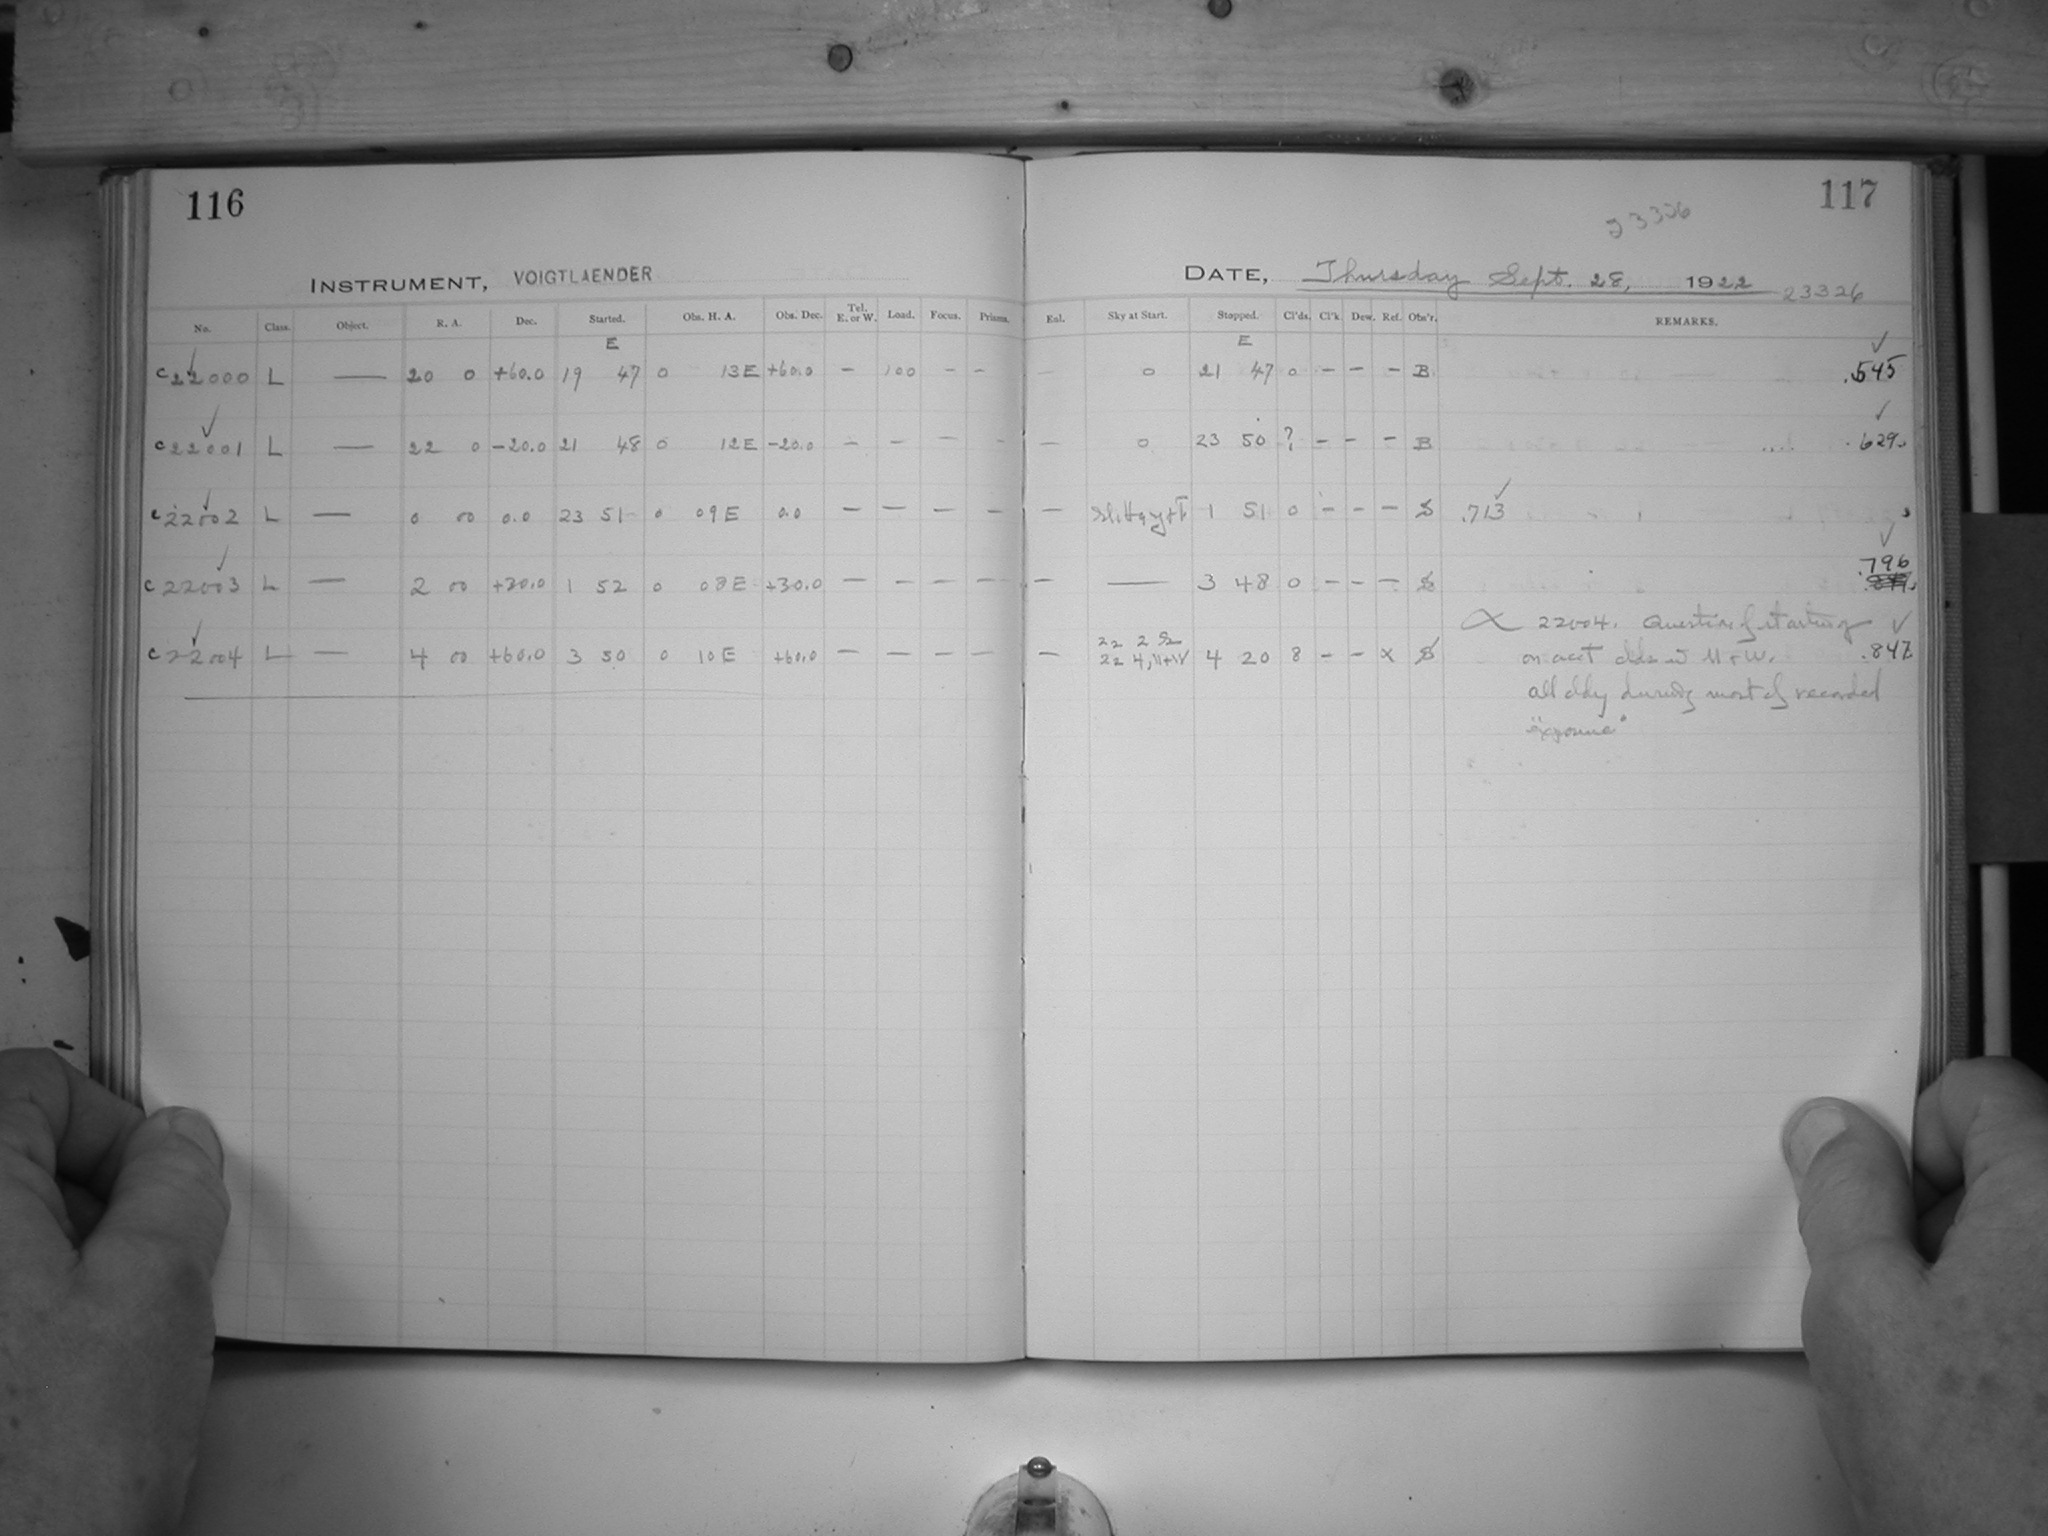 116
117
23326
INSTRUMENT, VOIGTLAENDER
DATE, Thursday Sept. 28, 1922 23326
No. Class. Object. R. A. Dec. Started. Obs. H. A. Obs. Dec. Tel. E. or W. Load. Focus. Prisms. Enl. Sky at Start. Stopped. Cl'ds. Cl'k. Dew. Ref. Obs'r. REMARKS.
E E ✓
c22000 L — 20 0 +60.0 19 47 0 13E +60.0 — 100 — — — 0 21 47 0 — — — B .545
✓ ✓
c22001 L — 22 0 -20.0 21 48 0 12E -20.0 — — — — — 0 23 50 ? — — — B .629
c22002 L — 0 00 0.0 23 51 0 09E 0.0 — — — — — 1 51 0 — — — S .713 ✓
c22003 L — 2 00 +30.0 1 52 0 08E +30.0 — — — — — — 3 48 0 — — — S .796 ✓
c22004 L — 4 00 +60.0 3 50 0 10E +60.0 — — — — — 22 2 S2 22 4, N+W 4 20 8 — — x S .847 ✓
22004. Question of starting
on acct clds in N+W.
all cldy during most of recorded
"exposure"